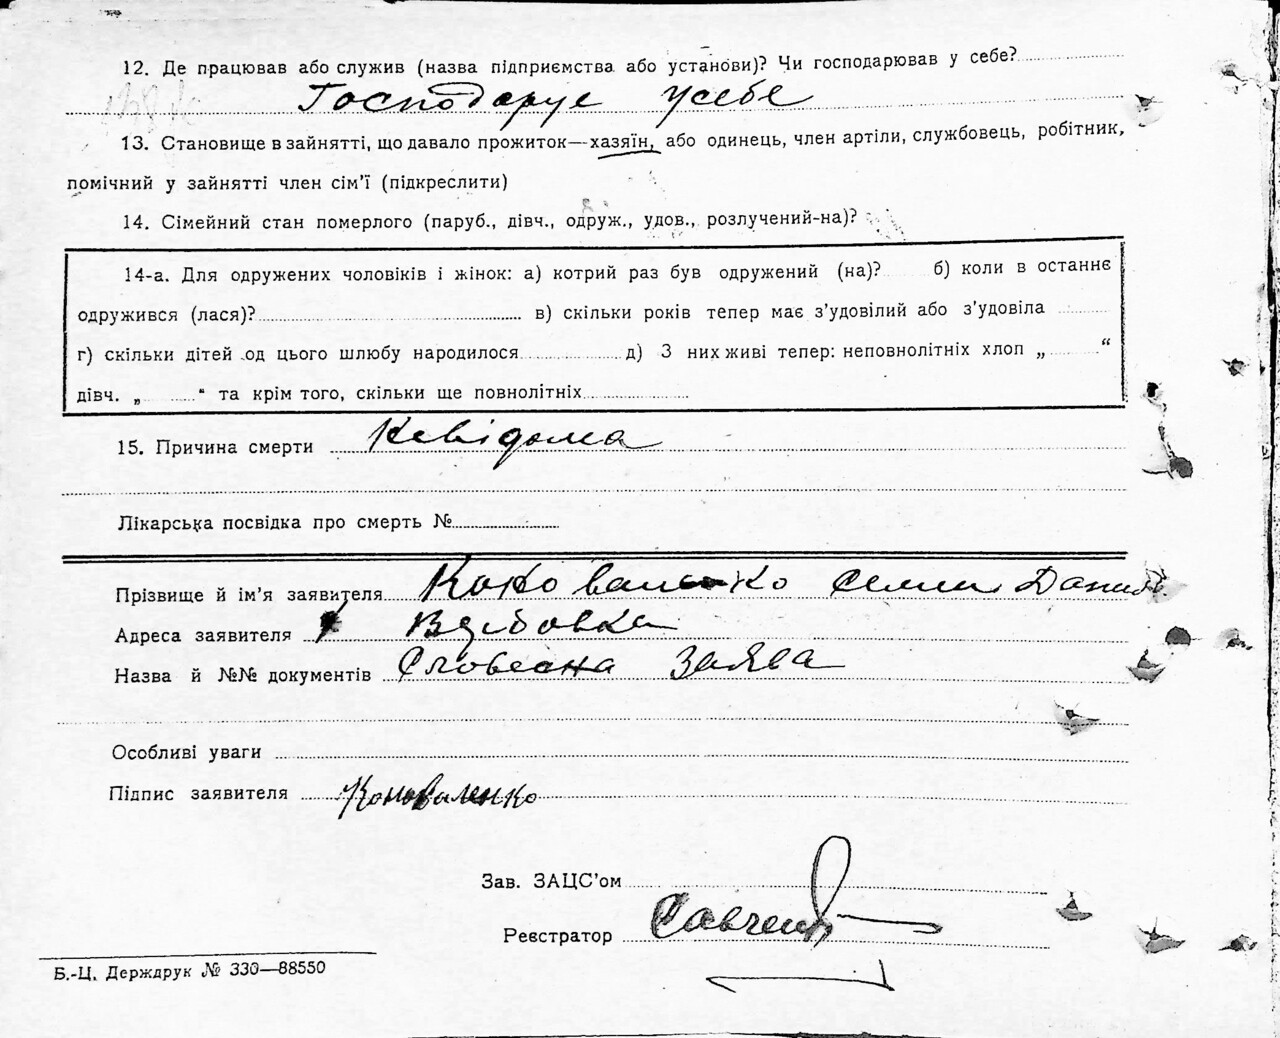 12. Де працював або служив (назва підприємства або установи)? Чи господарював у себе?
Господарує у себе
13. Становище в зайнятті, що давало прожиток—хазяїн, або одинець, член артіли, службовець, робітник,
помічний у зайнятті член сім'ї (підкреслити)
14. Сімейний стан померлого (паруб., дівч., одруж., удов., розлучений-на)?
14-а. Для одружених чоловіків і жінок: а) котрий раз був одружений (на)? б) коли в останнє
одружився (лася)? в) скільки років тепер має з'удовілий або з'удовіла
г) скільки дітей од цього шлюбу народилося д) З них живі тепер: неповнолітніх хлоп „ “
дівч. „ “ та крім того, скільки ще повнолітніх
15. Причина смерти Невідома
Лікарська посвідка про смерть №
Прізвище й ім'я заявителя Коноваленко Семен Данилов.
Адреса заявителя Вербовка
Назва й №№ документів Словесна заява
Особливі уваги
Підпис заявителя Коноваленко
Зав. ЗАЦС'ом
Реєстратор Савченко
Б.-Ц. Держдрук № 330—88550